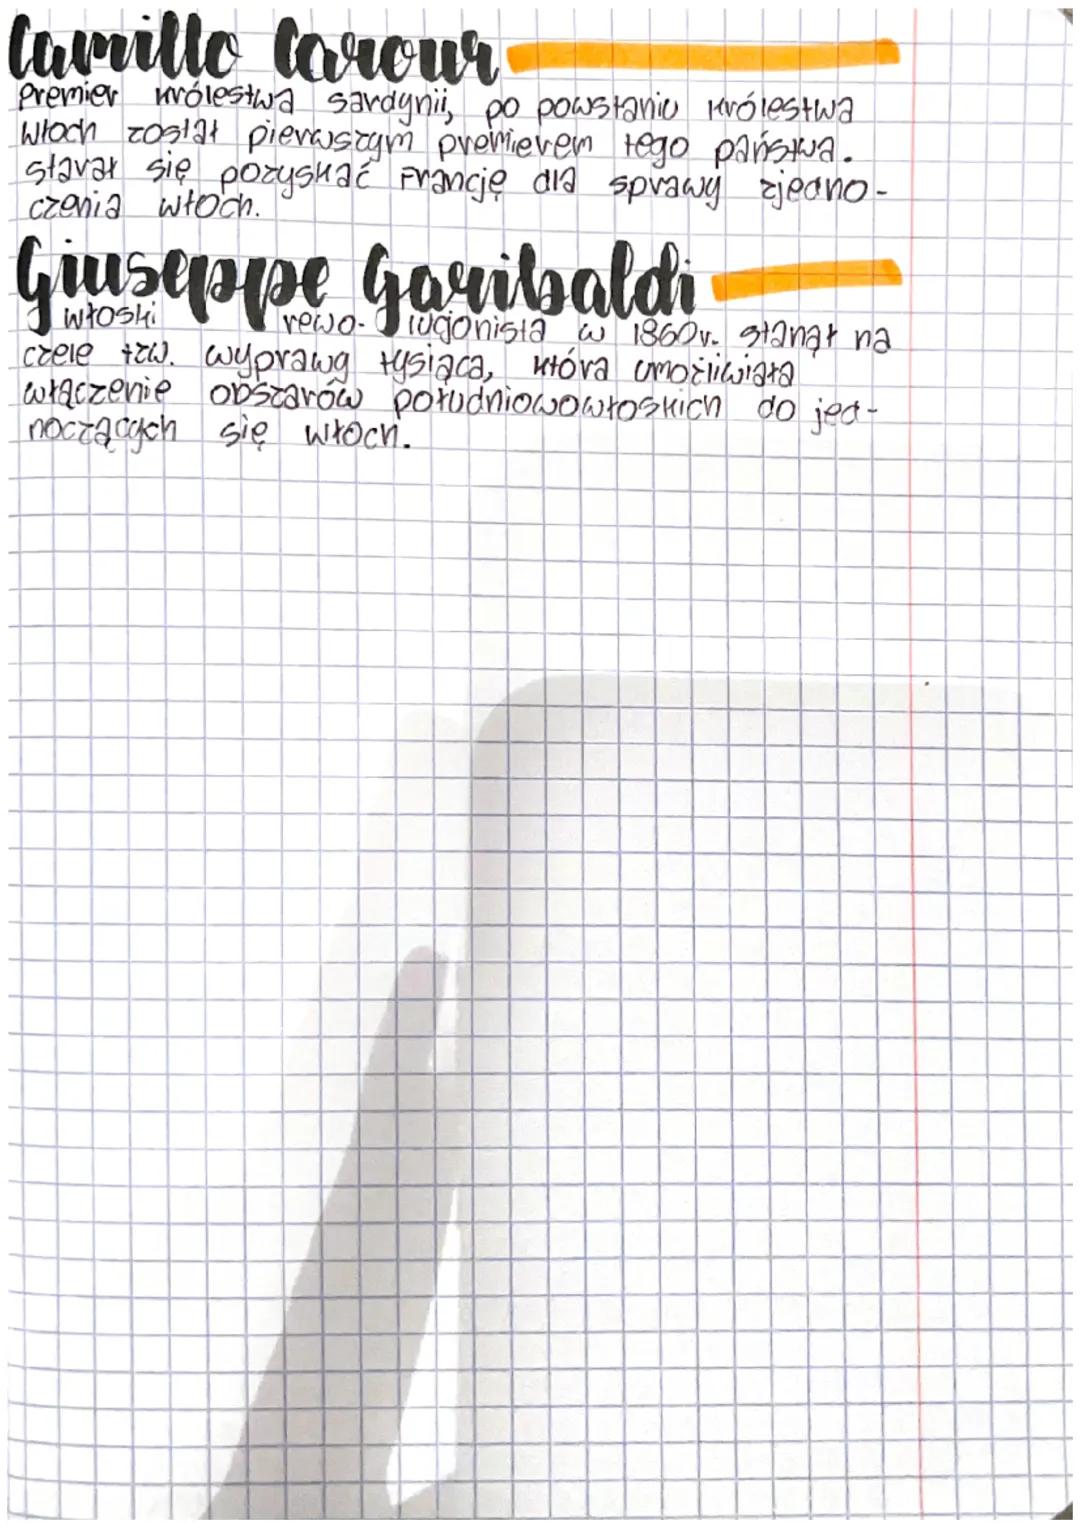 Camillo Cavour
Premier królestwa sardynii, po powstaniu królestwa
włoch został pierwszym premierem tego państwa.
starał się pozyskać Francję dla sprawy zjedno-
czenia włoch.
Giuseppe Garibaldi
włoski rewo- lucjonista w 1860r. stanął na
czele tzw. wyprawy tysiąca, która umożliwiała
włączenie obszarów południowowłoskich do jed-
noczących się włoch.